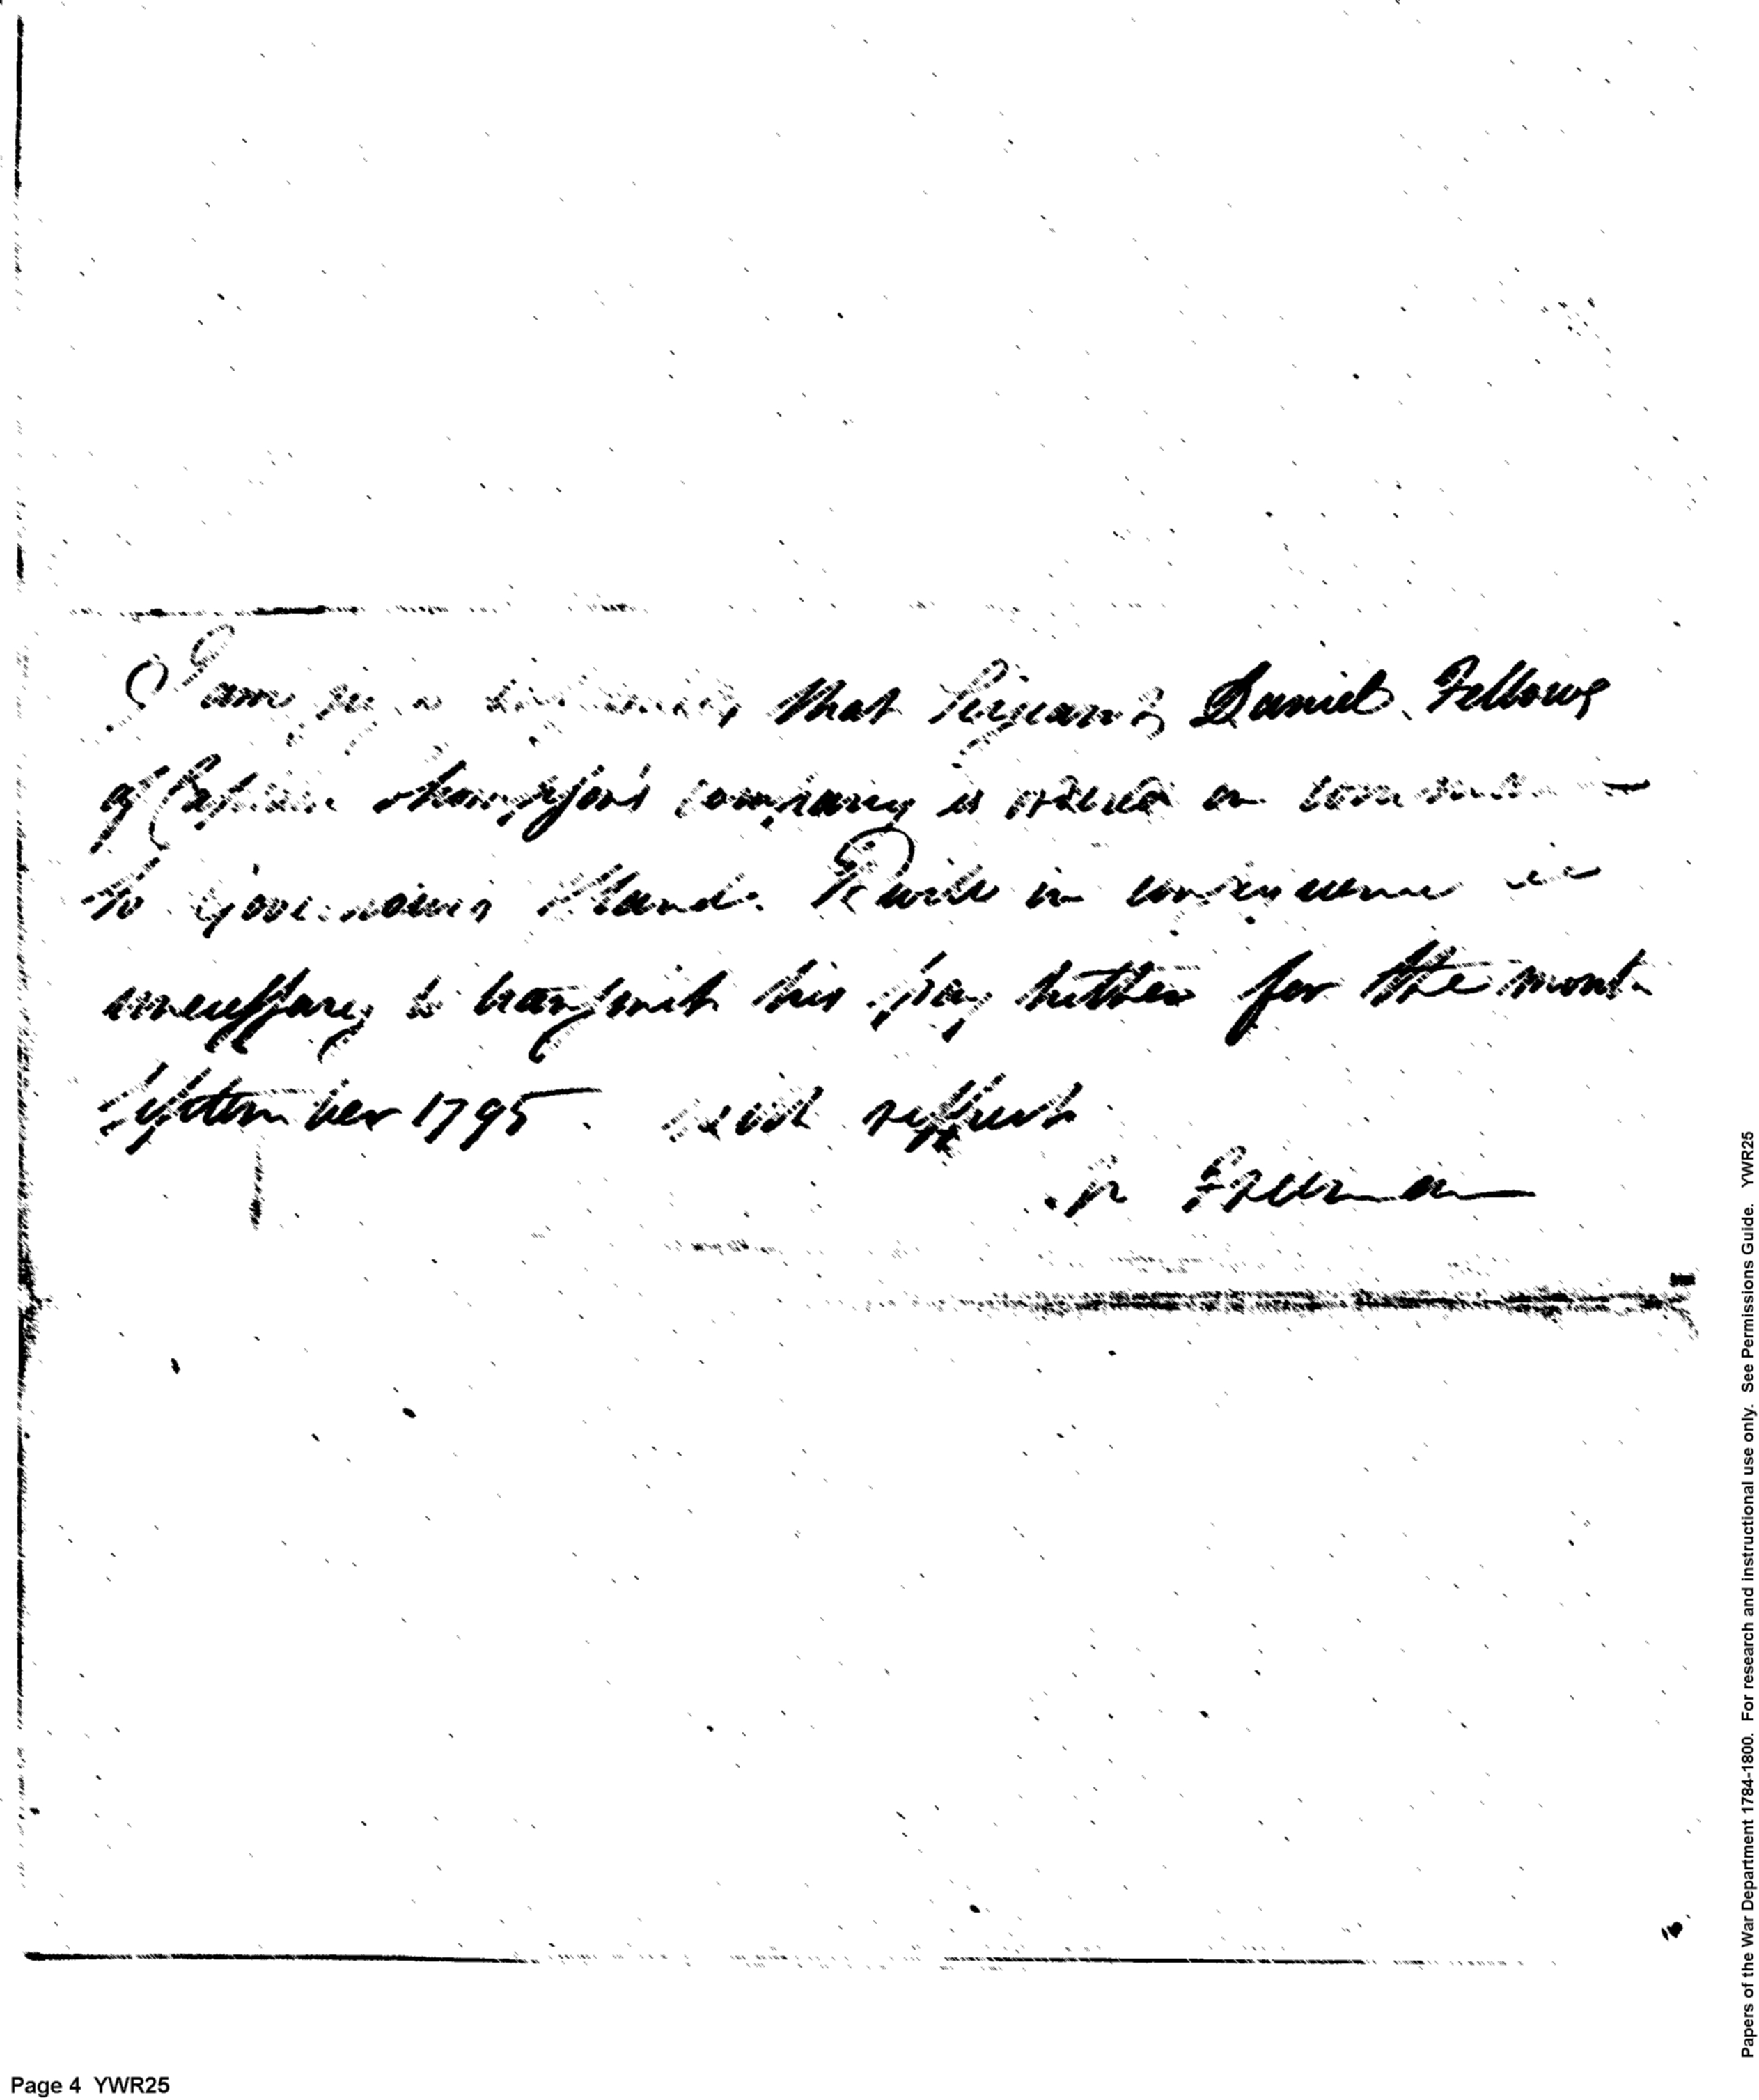 I am that Sergeant Daniel Fellows
of Captain Thompson's company is ordered on
to Governours Island. It will in consequence be
unnecessary to transmit his pay hither for the month
September 1795. with respect
Freeman
Papers of the War Department 1784-1800. For research and instructional use only. See Permissions Guide. YWR25
Page 4 YWR25